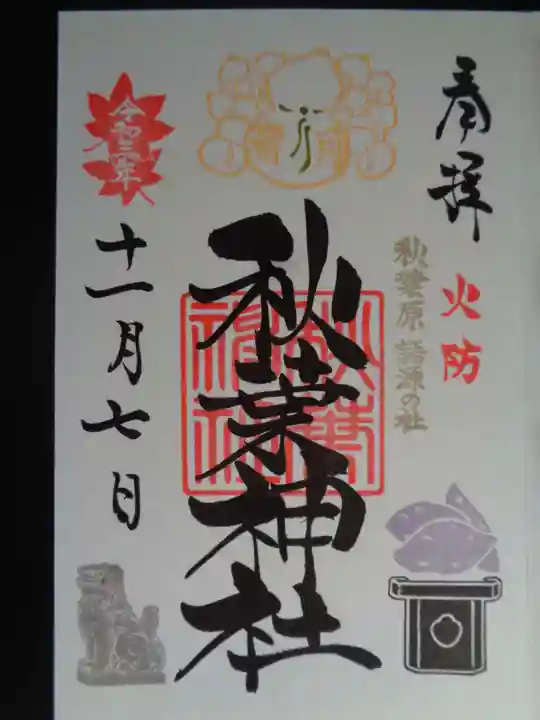 奉拝
火防
秋葉原語源の社
秋葉神社
秋葉
神社
令和三年
十一月七日